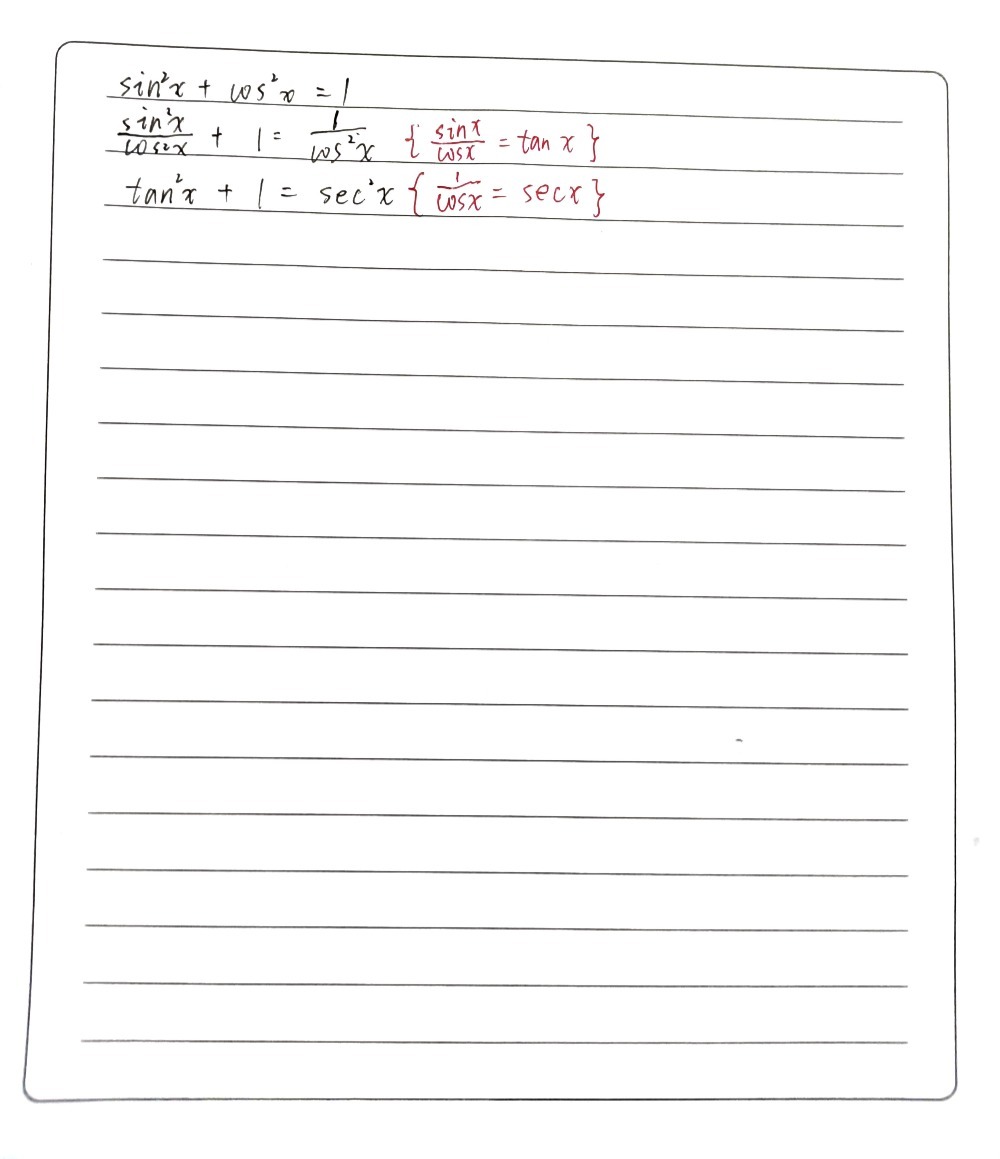 sin²x + cos²x = 1
sin²x/cos2x + 1 = 1/cos²x { sinx/cosx = tan x }
tan²x + 1 = sec²x { 1/cosx = secx }